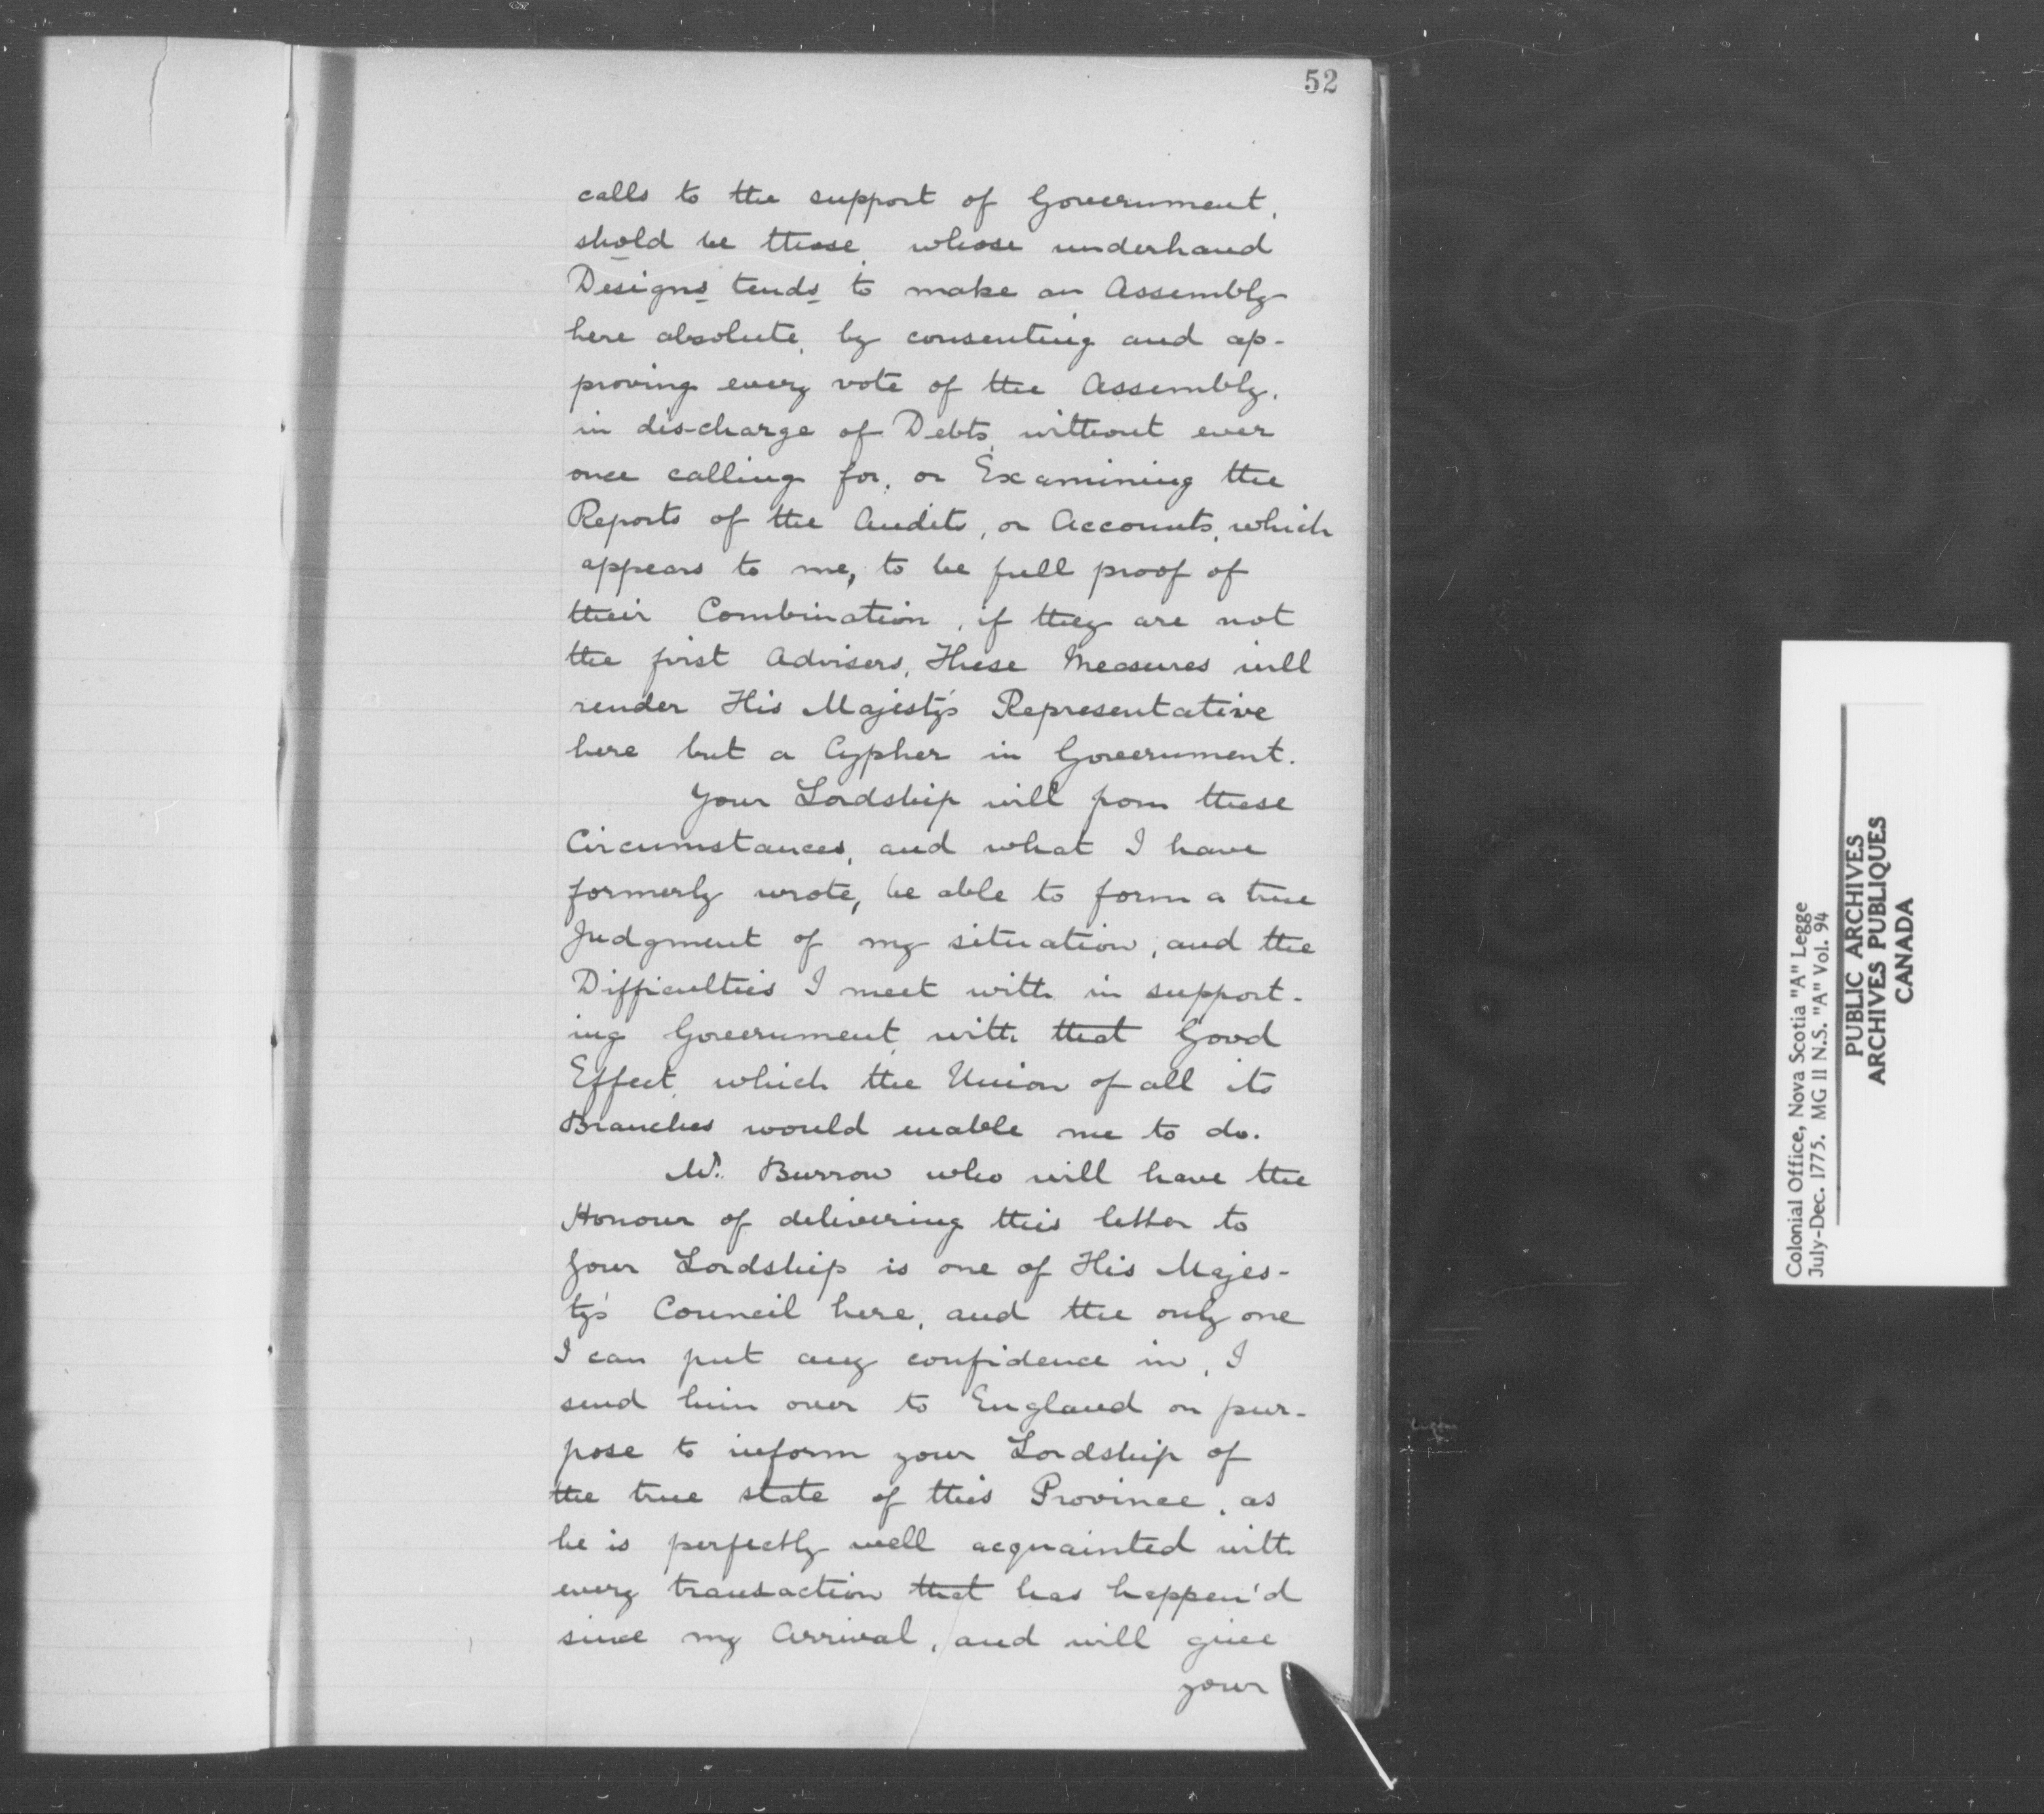 52
calls to the support of Government,
shold be those, whose underhand
Designs tends to make an Assembly
here absolute, by consenting and ap-
proving every vote of the Assembly,
in discharge of Debts, without ever
once calling for, or Examining the
Reports of the Audits, or Accounts, which
appears to me, to be full proof of
their Combination, if they are not
the first Advisers, These Measures will
render His Majesty's Representative
here but a Cypher in Government.
Your Lordship will from these
Circumstances, and what I have
formerly wrote, be able to form a true
Judgment of my situation, and the
Difficulties I meet with in support-
ing Government, with that Good
Effect, which the Union of all its
Branches would enable me to do.
Mr. Burrow who will have the
Honour of delivering this letter to
Your Lordship is one of His Majes-
ty's Council here, and the only one
I can put any confidence in, I
send him over to England on pur-
pose to inform your Lordship of
the true state of this Province, as
he is perfectly well acquainted with
every transaction that has happen'd
since my Arrival, and will give
your
Colonial Office, Nova Scotia "A" Legge
July-Dec. 1775. MG 11 N.S. "A" Vol. 94
PUBLIC ARCHIVES
ARCHIVES PUBLIQUES
CANADA